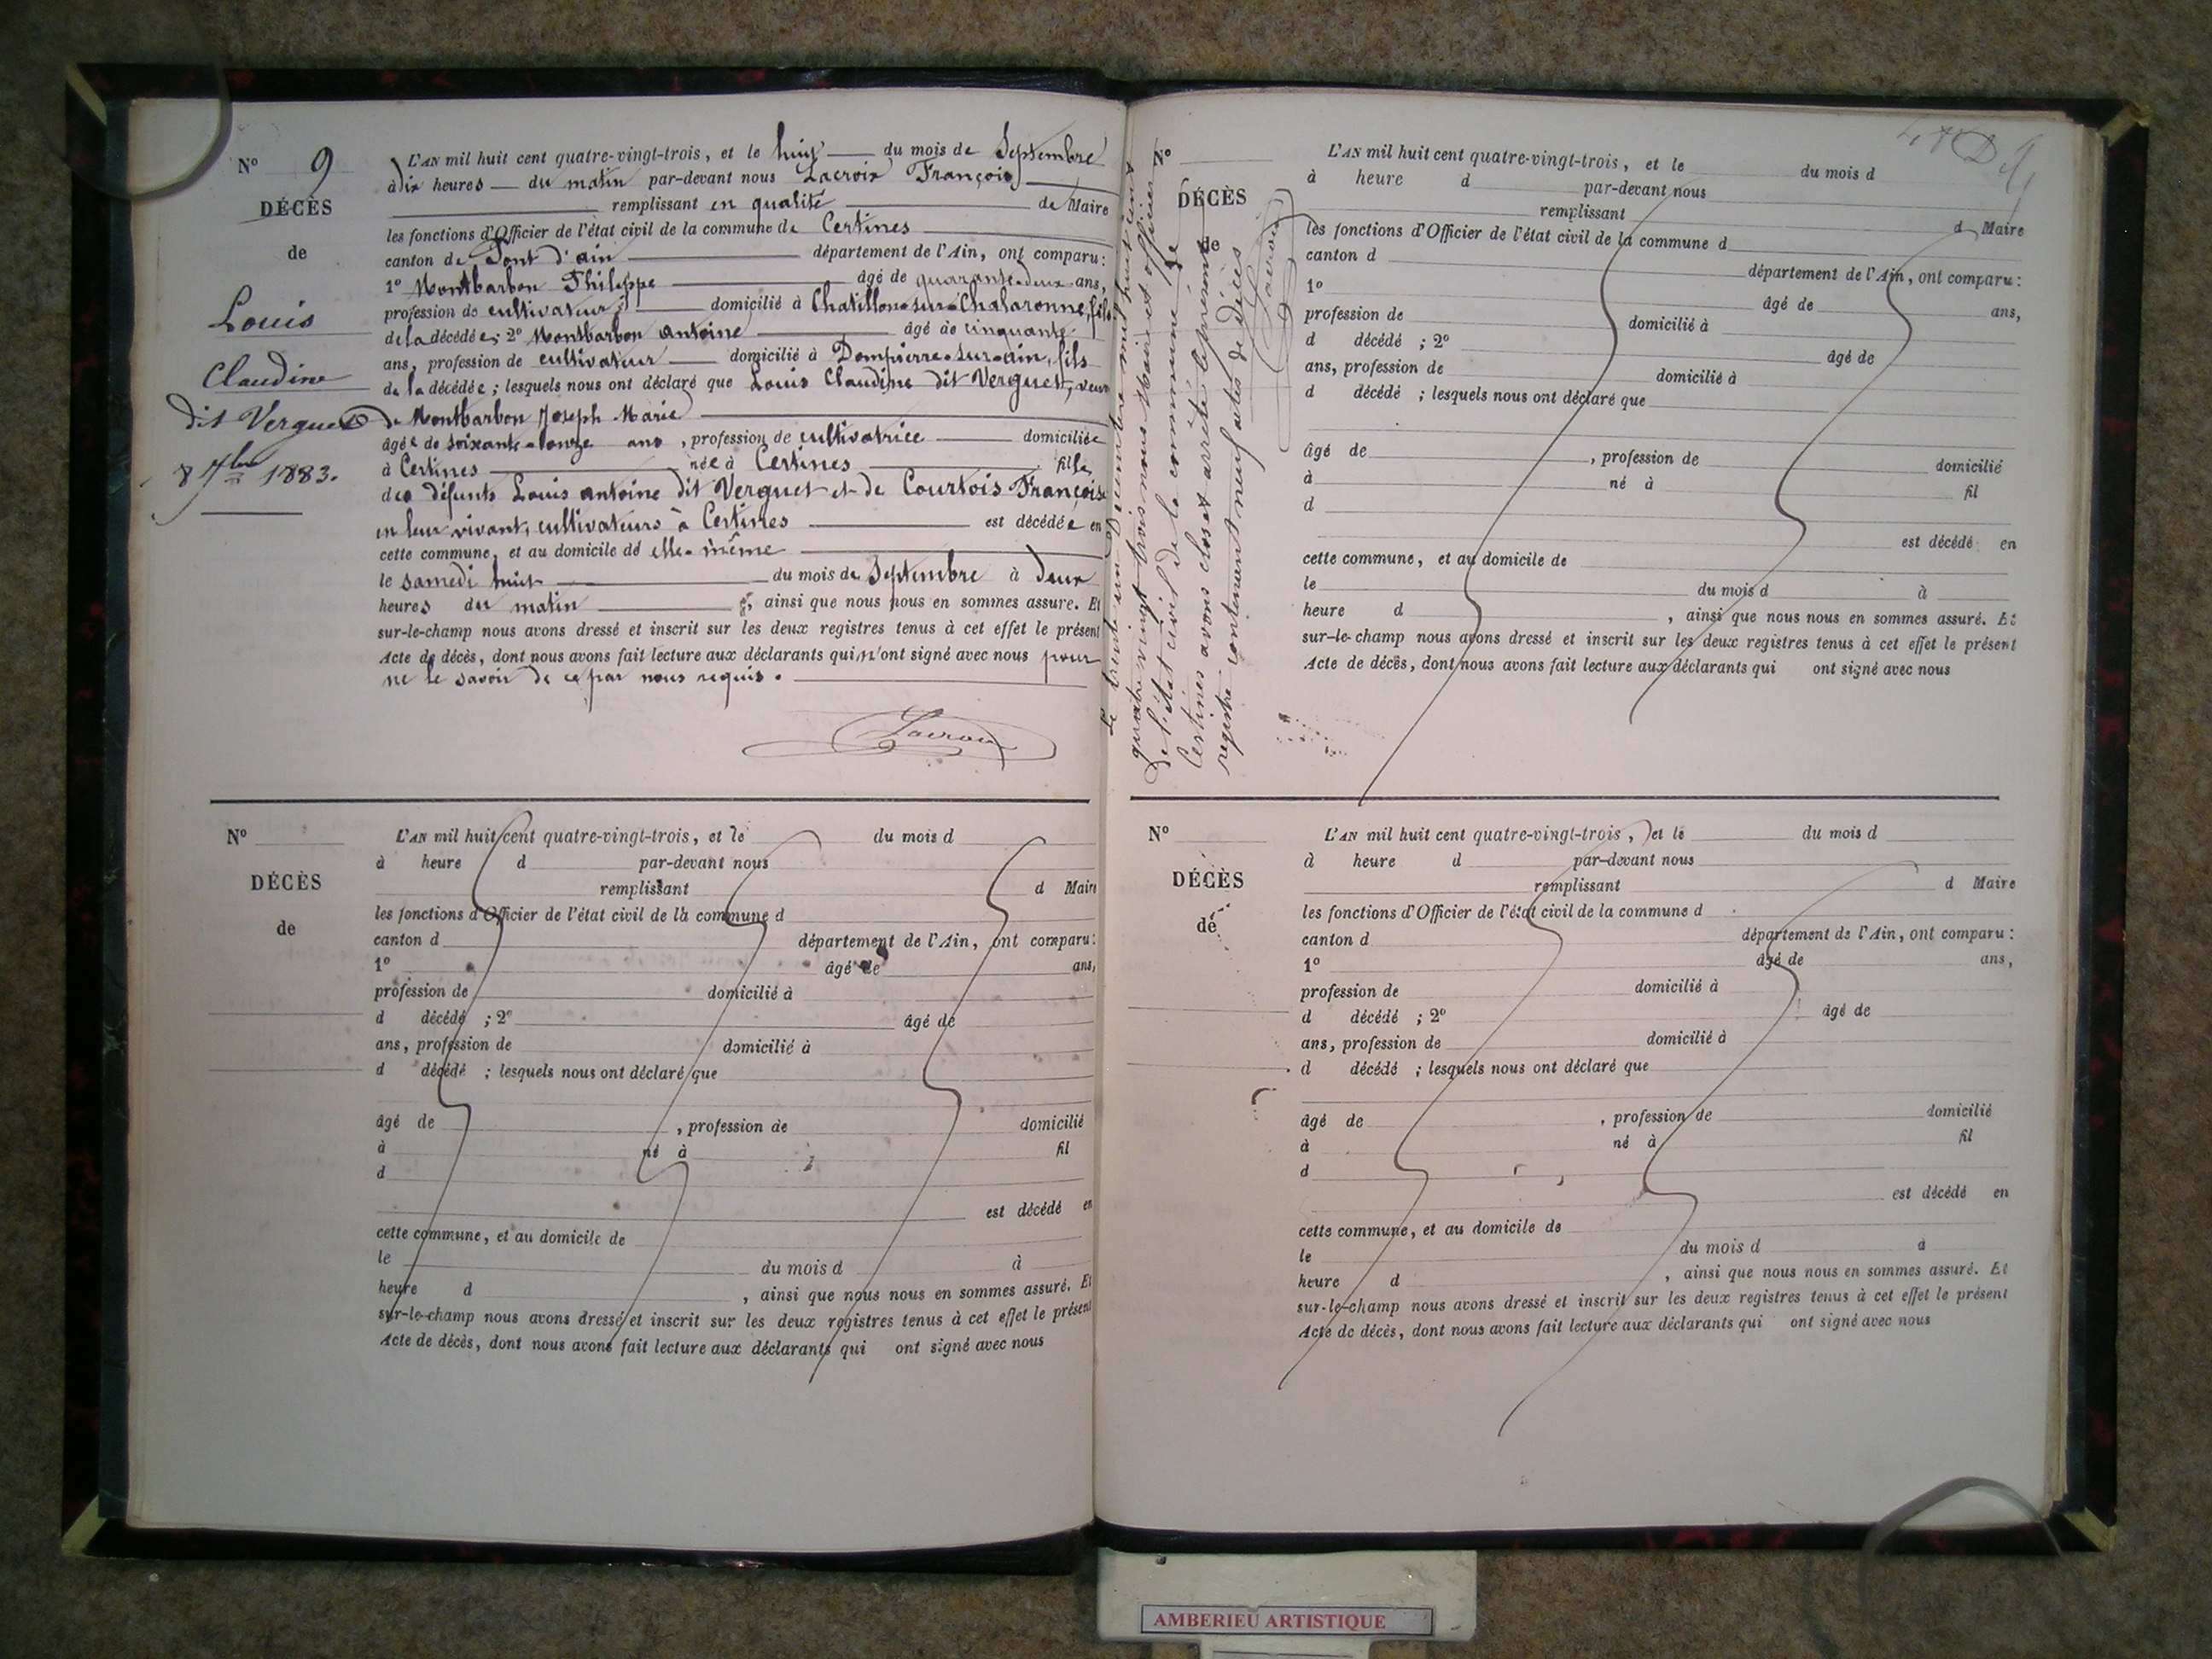 N° 9
DÉCÈS
de
Louis
Claudine
dit Verguet
8 7bre 1883.
L'AN mil huit cent quatre-vingt-trois, et le huit du mois de Septembre
à dix heures du matin par-devant nous Lacroix François
remplissant en qualité de Maire
les fonctions d'Officier de l'état civil de la commune de Certines
canton de Pont d'ain département de l'Ain, ont comparu :
1° Montbarbon Philippe âgé de quarante-deux ans,
profession de cultivateur domicilié à Chatillon-sur-Chalaronne, fils
de la décédée ; 2° Montbarbon antoine âgé de cinquante
ans, profession de cultivateur domicilié à Dompierre-sur-ain, fils
de la décédée ; lesquels nous ont déclaré que Louis Claudine dit Verguet, veuve
de Montbarbon Joseph Marie
âgée de soixante-onze ans, profession de cultivatrice domiciliée
à Certines née à Certines fille
des défunts Louis antoine dit Verguet et de Courtois Françoise
en leur vivant, cultivateurs à Certines est décédée en
cette commune, et au domicile de elle-même
le samedi huit du mois de Septembre à deux
heures du matin, ainsi que nous nous en sommes assuré. Et
sur-le-champ nous avons dressé et inscrit sur les deux registres tenus à cet effet le présent
Acte de décès, dont nous avons fait lecture aux déclarants qui n'ont signé avec nous pour
ne le savoir de ce par nous requis.
Lacroix
N°
DÉCÈS
de
L'AN mil huit cent quatre-vingt-trois, et le du mois d
à heure d par-devant nous
remplissant d Maire
les fonctions d'Officier de l'état civil de la commune d
canton d département de l'Ain, ont comparu :
1° âgé de ans,
profession de domicilié à
d décédé ; 2° âgé de
ans, profession de domicilié à
d décédé ; lesquels nous ont déclaré que
âgé de , profession de domicilié
à né à fil
d
est décédé en
cette commune, et au domicile de
le du mois d à
heure d , ainsi que nous nous en sommes assuré. Et
sur-le-champ nous avons dressé et inscrit sur les deux registres tenus à cet effet le présent
Acte de décès, dont nous avons fait lecture aux déclarants qui ont signé avec nous
Le trente un Décembre mil huit cent
quatre vingt trois nous Maire et officier
de l'état civil de la commune de
Certines avons clos et arrêté le présent
registre contenant neuf actes de décès
Lacroix
N°
DÉCÈS
de
L'AN mil huit cent quatre-vingt-trois, et le du mois d
à heure d par-devant nous
remplissant d Maire
les fonctions d'Officier de l'état civil de la commune d
canton d département de l'Ain, ont comparu :
1° âgé de ans,
profession de domicilié à
d décédé ; 2° âgé de
ans, profession de domicilié à
d décédé ; lesquels nous ont déclaré que
âgé de , profession de domicilié
à né à fil
d
est décédé en
cette commune, et au domicile de
le du mois d à
heure d , ainsi que nous nous en sommes assuré. Et
sur-le-champ nous avons dressé et inscrit sur les deux registres tenus à cet effet le présent
Acte de décès, dont nous avons fait lecture aux déclarants qui ont signé avec nous
N°
DÉCÈS
de
L'AN mil huit cent quatre-vingt-trois, et le du mois d
à heure d par-devant nous
remplissant d Maire
les fonctions d'Officier de l'état civil de la commune d
canton d département de l'Ain, ont comparu :
1° âgé de ans,
profession de domicilié à
d décédé ; 2° âgé de
ans, profession de domicilié à
d décédé ; lesquels nous ont déclaré que
âgé de , profession de domicilié
à né à fil
d
est décédé en
cette commune, et au domicile de
le du mois d à
heure d , ainsi que nous nous en sommes assuré. Et
sur-le-champ nous avons dressé et inscrit sur les deux registres tenus à cet effet le présent
Acte de décès, dont nous avons fait lecture aux déclarants qui ont signé avec nous
AMBERIEU ARTISTIQUE